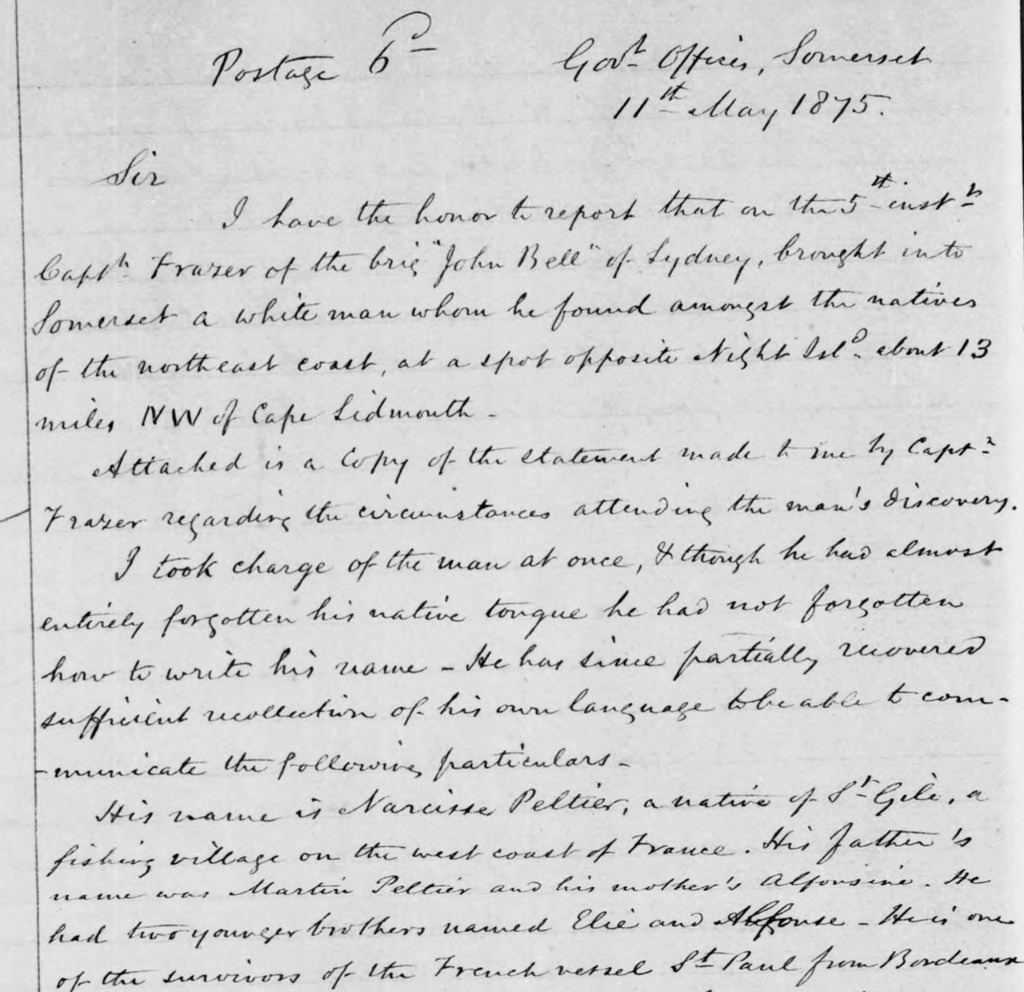 Postage 6d
Govt. Offices, Somerset
11th May 1875.
Sir
I have the honor to report that on the 5th inst.
Captn Frazer of the brig "John Bell" of Sydney, brought into
Somerset a white man whom he found amongst the natives
of the northeast coast, at a spot opposite Night Isld. about 13
miles NW of Cape Sidmouth -
Attached is a Copy of the statement made to me by Captn
Frazer regarding the circumstances attending the man's discovery.
I took charge of the man at once, & though he had almost
entirely forgotten his native tongue he had not forgotten
how to write his name - He has since partially recovered
sufficient recollection of his own language to be able to com-
-municate the following particulars -
His name is Narcisse Peltier, a native of St. Gile, a
fishing village on the west coast of France. His father's
name was Martin Peltier and his mother's Alfonsine. He
had two younger brothers named Elie and Alfonse - He is one
of the survivors of the French vessel St. Paul from Bordeaux